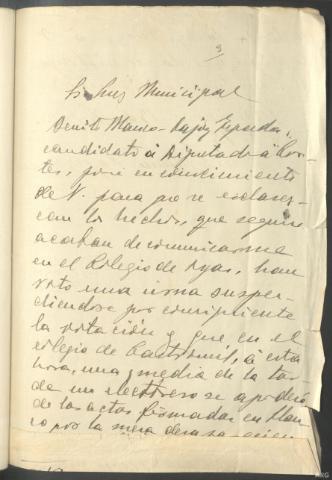 3
Sr Juez Municipal
Benito Manso-Lajoz Tejeda,
candidato á Diputado á Cor-
tes, pone en conocimiento
de V. para que se esclarez-
can los hechos, que según
acaban de comunicarme
en el Colegio de Oyas, han
roto una urna suspen-
diendose por consiguiente
la votación y que en el
colegio de á esta
hora, una y media de la tar-
de un se apoderó
de las actas firmadas en blan-
co por la mesa